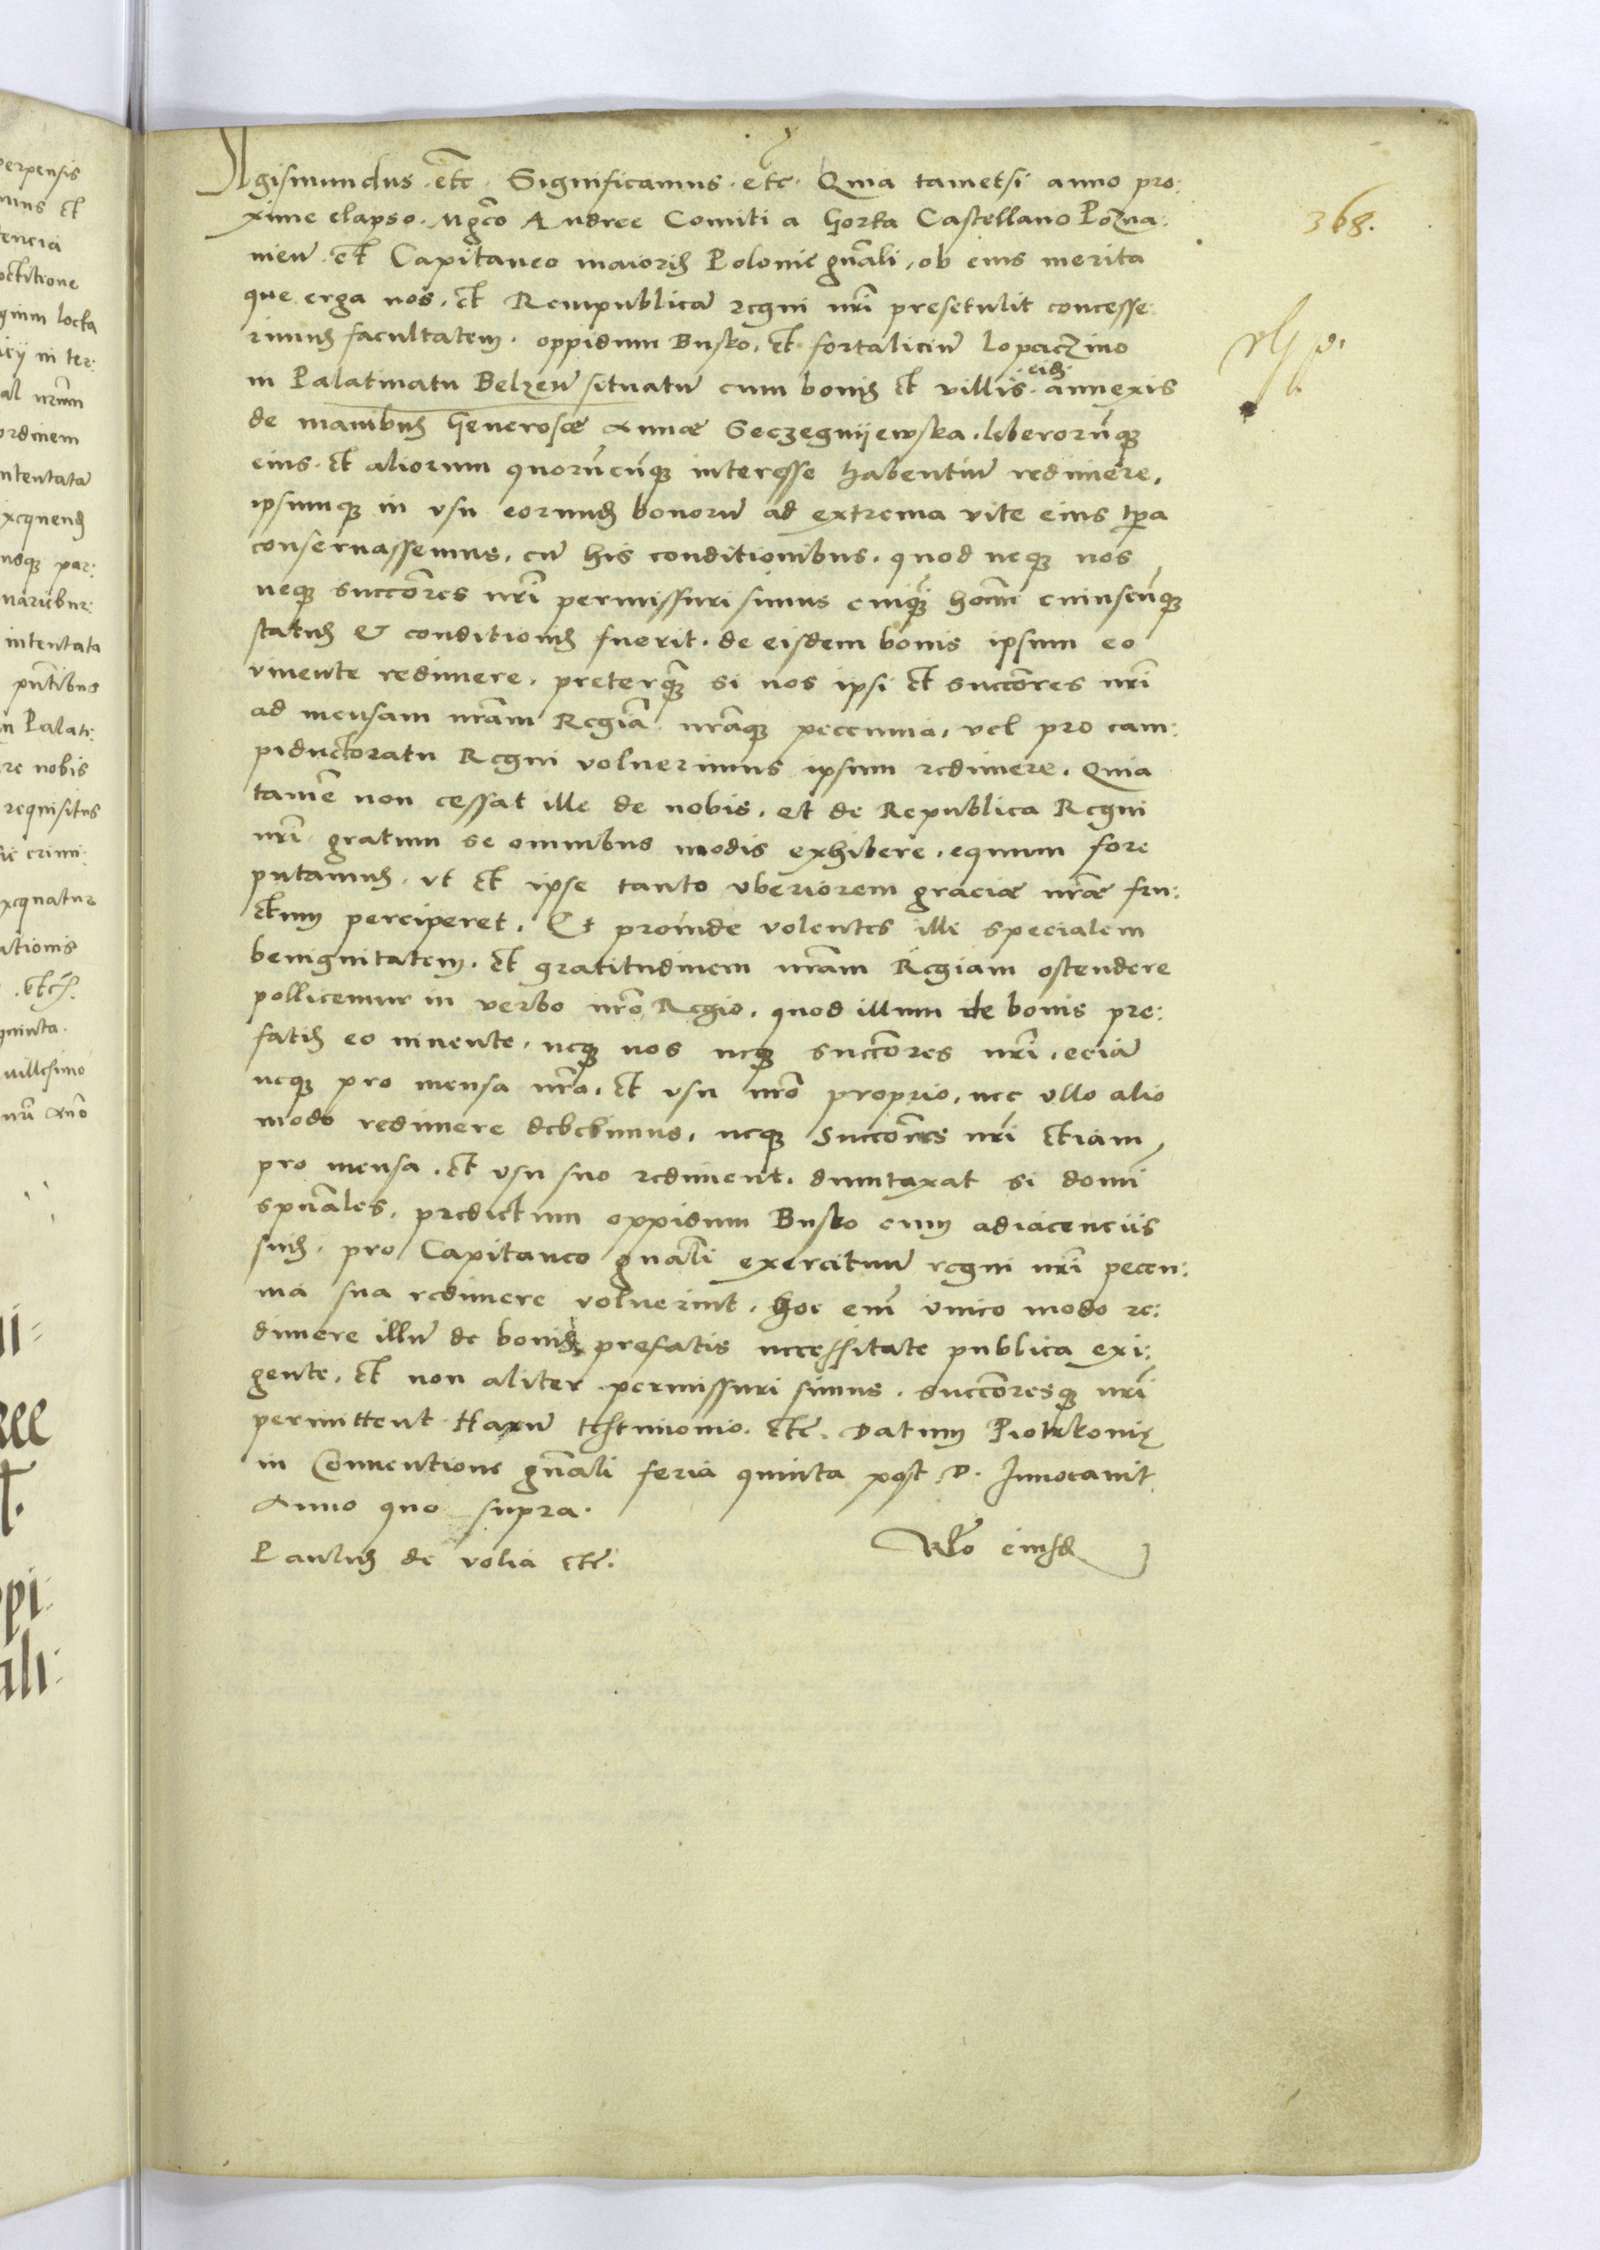 gismundus. etc. Significamus. etc. Quia tametsi anno pro:
xime elapso. Mgco Andree Comiti a Gorka Castellano Pozna:
nien. et Capitaneo maioris Polonie gnali, ob eius merita
que erga nos, et Rempublicã regni nri presetulit concesse:
rimus facultatem. oppidum Busko, et fortaliciũ Lopaczino
in Palatinatu Belzeñ situatũ cum bonis et villis eisd. annexis
de manibus Generosæ Annæ Seczegnijewska, liberorũque
eius. et aliorum quorũcũque interesse habentiũ redimere,
ipsumque in usu eorund bonorũ ad extrema vite eius tpa
conservassemus, cũ his conditionibus, quod neque nos
neque succores nri permissuri simus cuique homi cuiuscũque
status & conditionis fuerit. de eisdem bonis ipsum eo
vivente redimere, preterquã si nos ipsi et succores nri
ad mensam nram Regiã nraque peccunia, vel pro cam:
piductoratu Regni voluerimus ipsum redimere. Quia
tamẽ non cessat ille de nobis, et de Republica Regni
nri gratum se omnibus modis exhibere, equum fore
putamus, ut et ipse tanto uberiorem graciæ nræ fru:
ctum perciperet, Et proinde volentes illi specialem
benignitatem, et gratitudinem nram Regiam ostendere
pollicemur in verbo nro Regio, quod illum de bonis pre:
fatis eo vivente, neque nos neque succores nri, eciã
neque pro mensa nra, et usu nro proprio, nec ullo alio
modo redimere debebimus, neque Succores nri etiam
pro mensa, et usu suo rediment, dumtaxat si domi
spuales, predictum oppidum Busko cum adiacenciis
suis, pro Capitaneo gnali exercituũ regni nri pecen:
nia sua redimere voluerint, hoc em unico modo re:
dimere illũ de bonis prefatis necessitate publica exi:
gente, et non aliter permissuri simus, succoresque nri
permittent. Harũ testimonio. etc. Datum Piotrkoniæ
in Conventione gnali feria quinta post D. Invocavit
Anno quo supra.
Paulus de Volia etc.
Rlo eiusd
368.